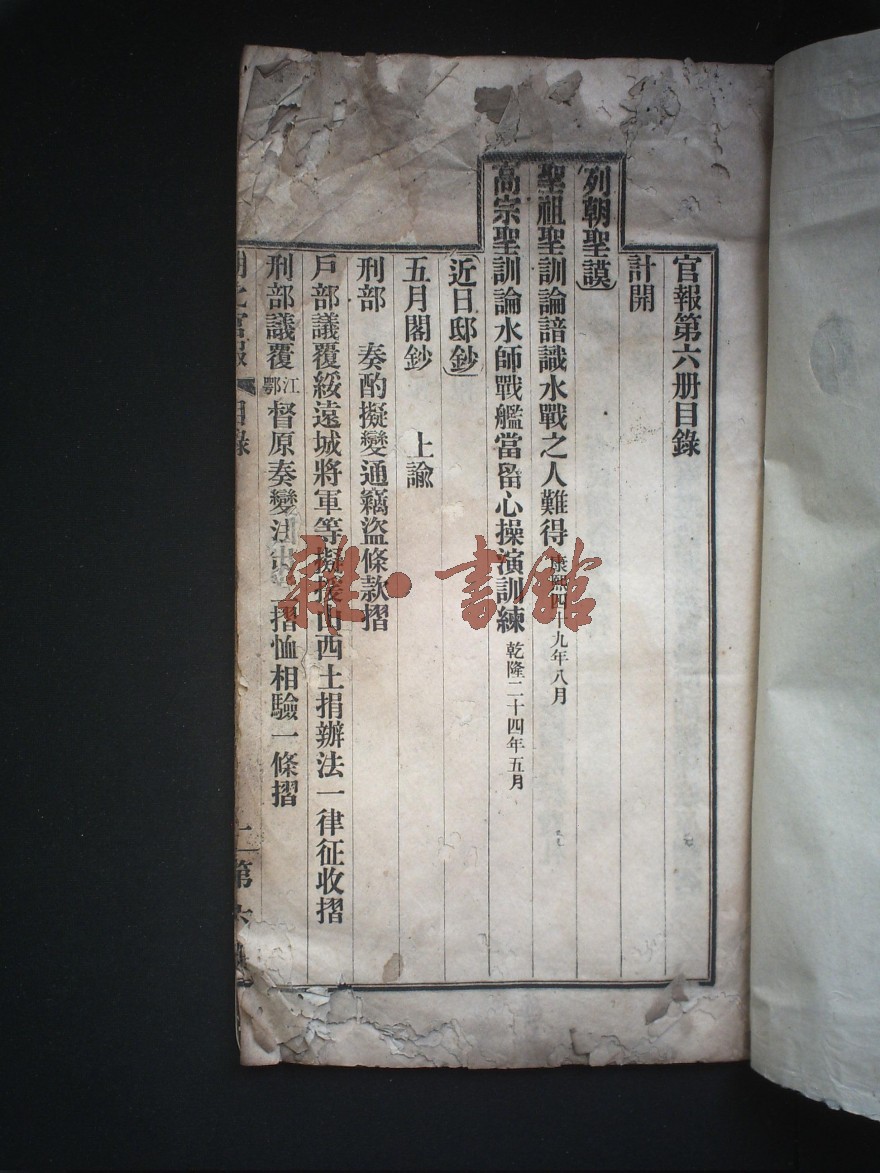 官報第六册目錄
計開
列朝聖謨
聖祖聖訓論諳識水戰之人難得 康熙四十九年八月
高宗聖訓論水師戰艦當留心操演訓練 乾隆二十四年五月
近日邸鈔
五月閣鈔 上諭
刑部 奏酌擬變通竊盜條款摺
戶部議覆綏遠城將軍等擬援山西土捐辦法一律征收摺
刑部議覆江鄂督原奏變法摺恤相驗一條摺
北官報 目錄 第六
雜·書館